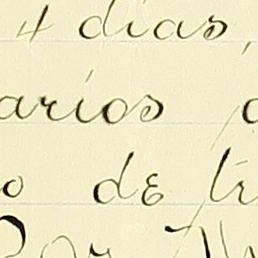 4 dias,
arios
o de
Por